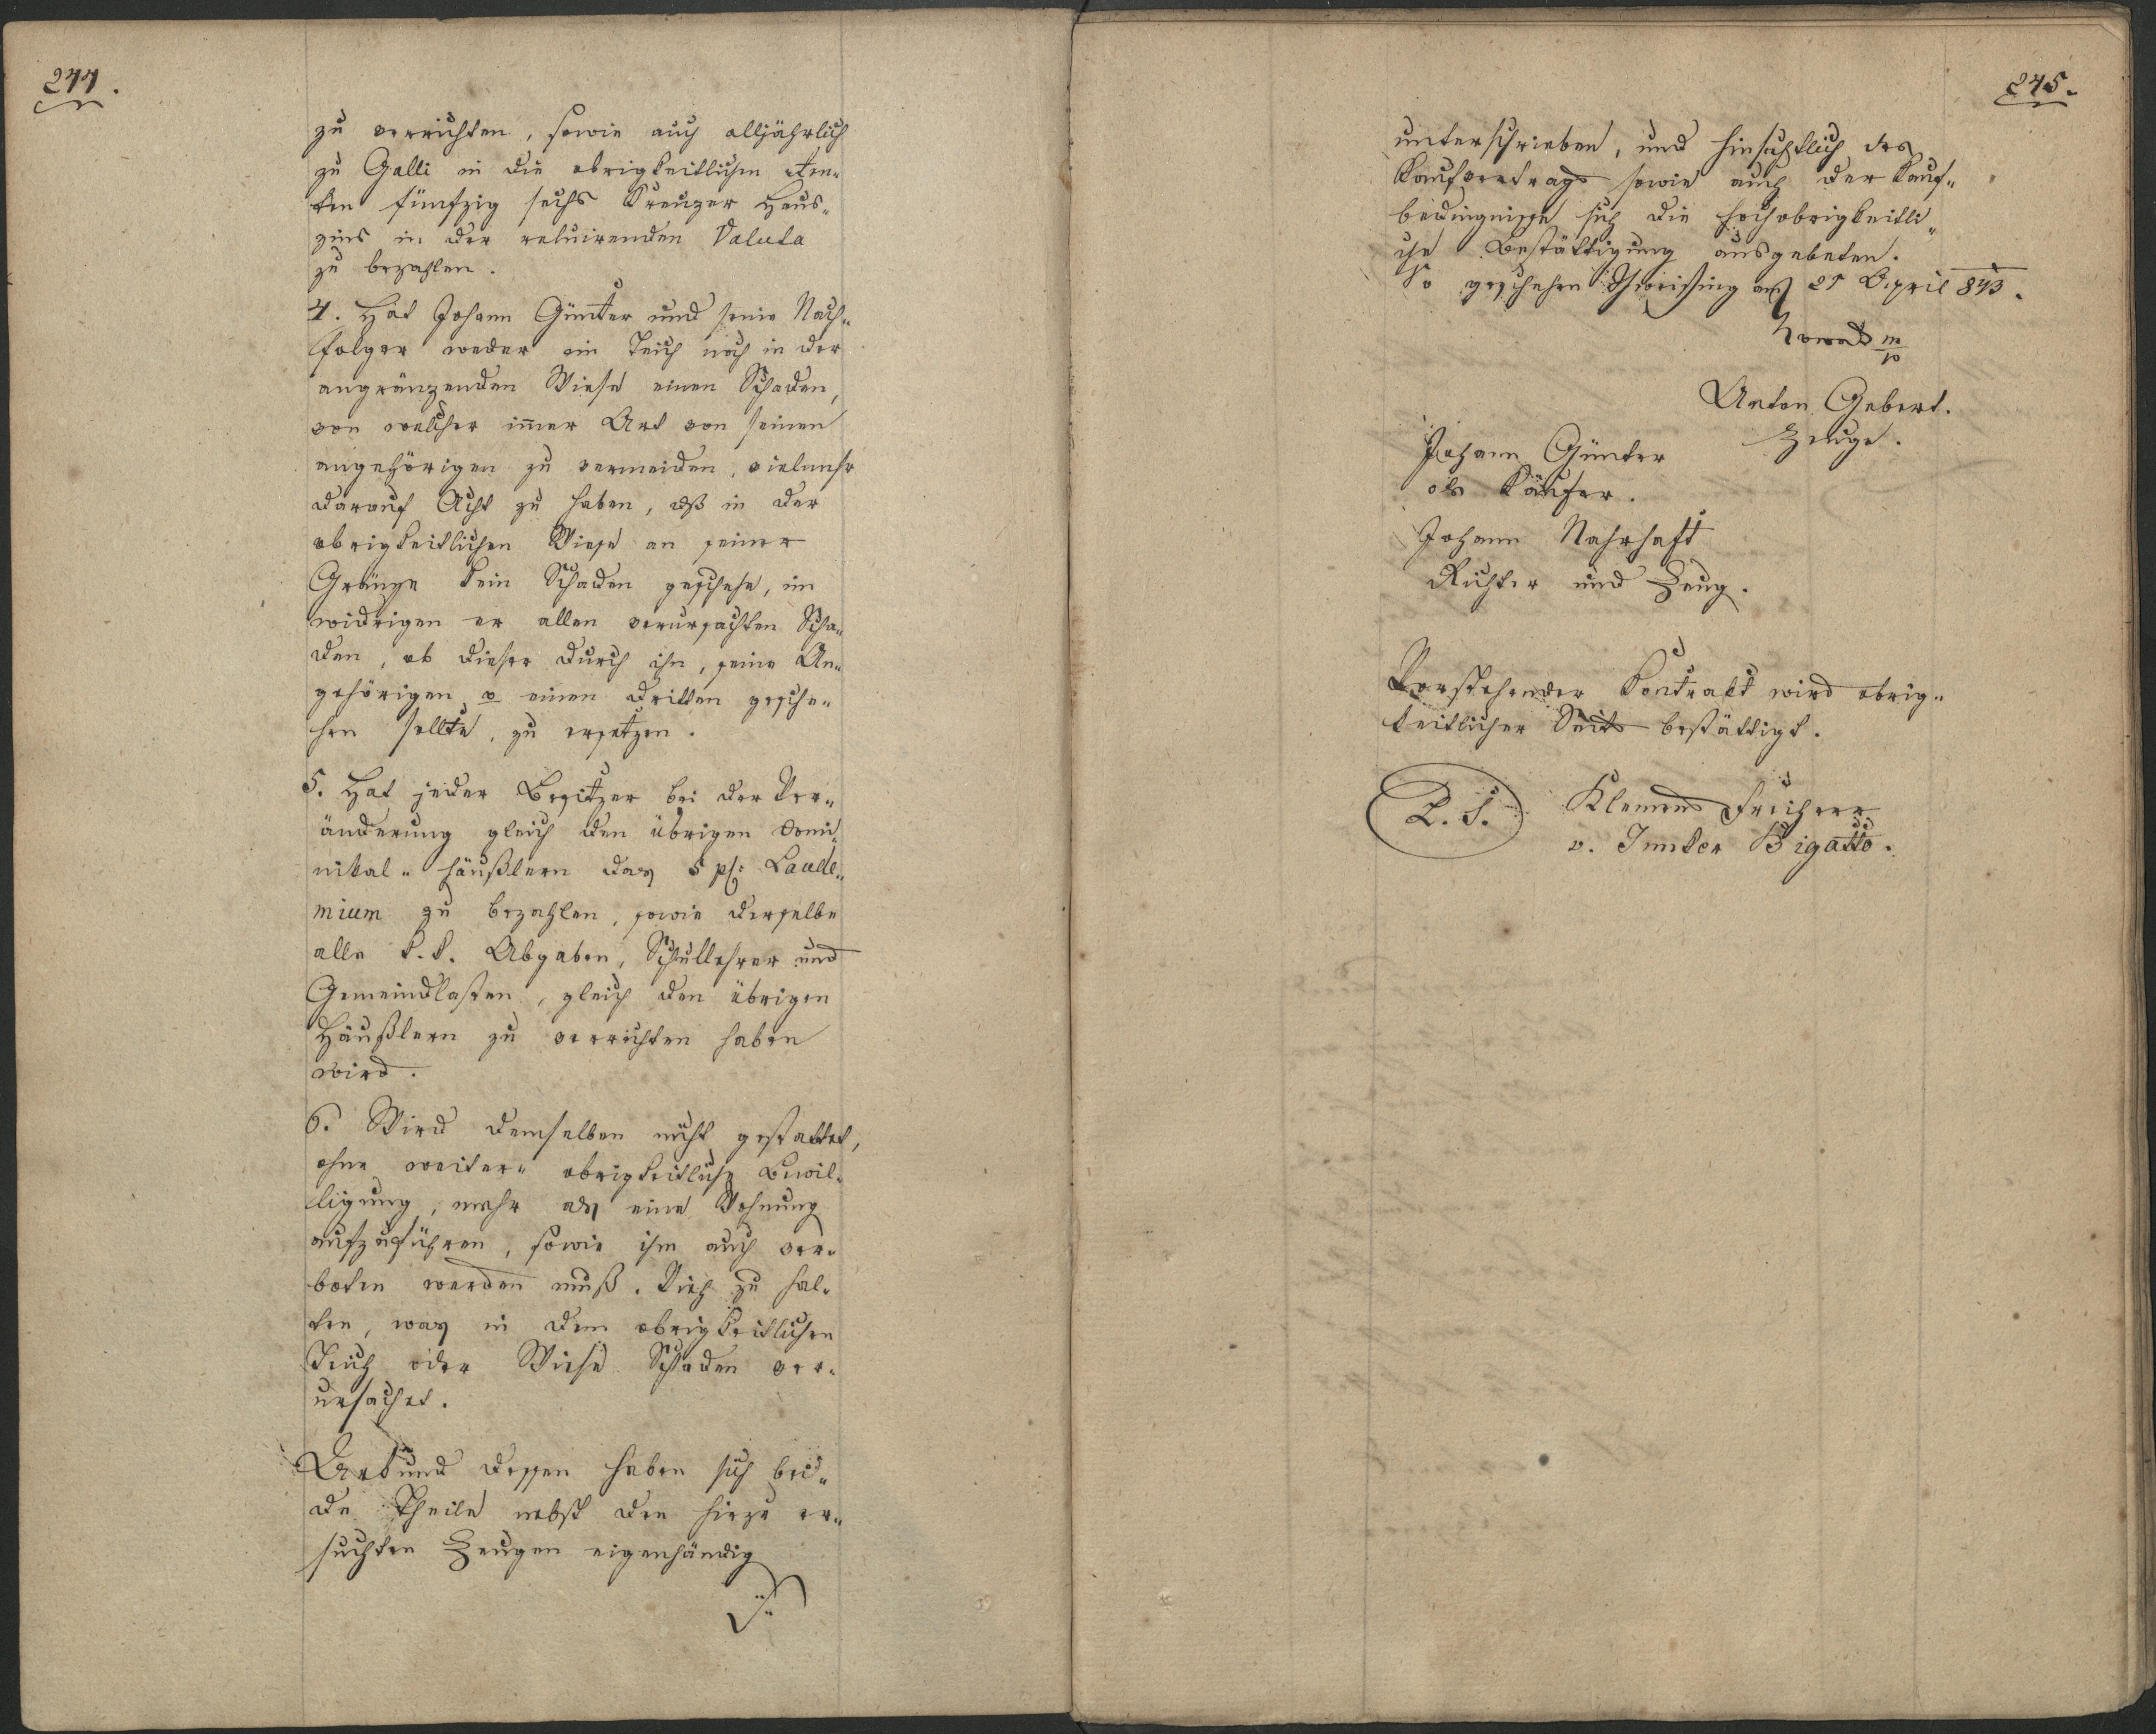 244.
zu verrichten, sowie auch alljährlich
zu Galli in die obrigkeitlichen Ren-
ten fünfzig sechs Kreuzer Haus-
zins in der reluirenden Valuta
zu bezahlen.
4. Hat Johann Günter und seine Nach-
folger weder im Teich noch in der
angränzenden Wiese einen Schaden,
von welcher im̅er Art von seinen
angehörigen zu vermeiden, vielmehr
darauf Acht zu haben, dß in der
obrigkeitlichen Wiese an seiner
Gränze kein Schaden geschehe, im
widrigen er allen verursachten Scha-
den, ob dieser durch ihn, seine An-
gehörigen o einen dritten gesche-
hen sollte, zu ersetzen.
5. Hat jeder Besitzer bei der Ver-
änderung gleich den übrigen Domi-
nikal- häußlern das 5 pC: Laude-
mium zu bezahlen, sowie derselbe
alle k. k. Abgaben, Schullehrer und
Gemeindlasten, gleich den übrigen
Häußlern zu verrichten haben
wird.
6. Wird demselben nicht gestattet,
ohne weiter- obrigkeitliche Bewil-
ligung, mehr als eine Wohnung
aufzuführen, sowie ihm auch ver-
boten werden muß. Vieh zu hal-
ten, was in dem obrigkeitlichen
Teich oder Wiese Schaden ver-
ursachet.
Urkund dessen haben sich bei-
de Theile nebst den hiezu er-
suchten Zeugen eigenhändig
245.
unterschrieben, und hinsichtlich des
Kaufvertrags sowie auch der Kauf-
bedingnisse sich die hochobrigkeitli-
che Bestättigung ausgebeten.
So geschehen am 21 April 843.
Nowak m/p
Anton Gebert.
Zeuge.
Johann Günter
als Käufer.
Johann Nahrhaft
Richter und Zeug.
Vorstehender Kontrakt wird obrig-
keitlicher Seits bestättigt.
L. S. Klemens Freiherr
v. Junker Bigatto.